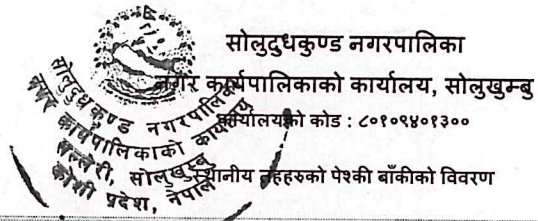 सोलुदुधकुण्ड नगरपालिका
नगर कार्यपालिकाको कार्यालय, सोलुखुम्बु
कार्यालयको कोड : ८०१०९४०१३००
स्थानीय तहहरुको पेश्की बाँकीको विवरण
सोलुदुधकुण्ड नगरपालिका
नगर कार्यपालिकाको कार्यालय
सल्लेरी, सोलुखुम्बु
कोशी प्रदेश, नेपाल